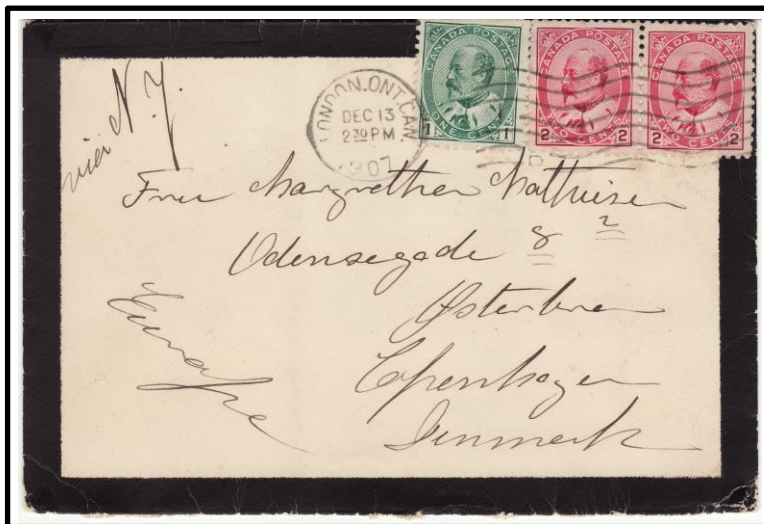 via N.Y.
LONDON.ONT.CAN.
DEC 13
2 30 PM
1907
CANADA POSTAGE
1 ONE CENT 1
CANADA POSTAGE
2 TWO CENTS 2
CANADA POSTAGE
2 TWO CENTS 2
Fru Margrethe Mathiesen
Odensegade 8 2
Østerbro
Copenhagen
Denmark
Europe